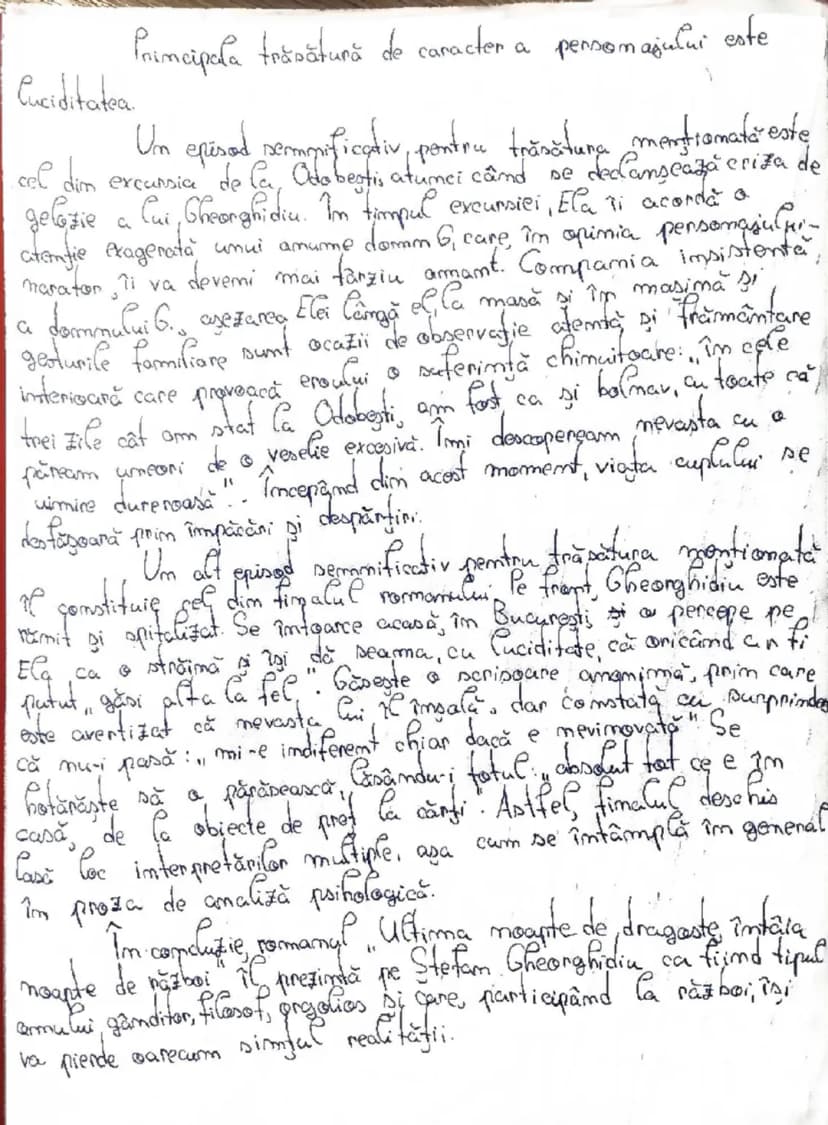 Principala trăsătură de caracter a personajului este
luciditatea.
Un episod semnificativ, pentru trăsătura menționată este
cel din excursia de la Odobești, atunci când se declanșează criza de
gelozie a lui Gheorghidiu. În timpul excursiei, Ela îi acordă o
atenție exagerată unui anume domn G, care, în opinia personajului-
narator, îi va deveni mai târziu amant. Compania insistentă
a domnului G., așezarea Elei lângă el, la masă și în mașină și
gesturile familiare sunt ocazii de observație atentă și frământare
interioară care provoacă eroului o suferință chinuitoare: „în cele
trei zile cât am stat la Odobești, am fost ca și bolnav, cu toate că
păream uneori de o veselie excesivă. Îmi descopeream nevasta cu o
uimire dureroasă". Începând din acest moment, viața cuplului se
desfășoară prin împăcări și despărțiri.
Un alt episod semnificativ pentru trăsătura menționată
îl constituie cel din finalul romanului. Pe front, Gheorghidiu este
rănit și spitalizat. Se întoarce acasă, în București și o percepe pe
Ela ca o străină și își dă seama, cu luciditate, că oricând ar fi
putut „găsi alta la fel". Găsește o scrisoare anonimă, prin care
este avertizat că nevasta lui îl înșală, dar constată cu surprindere
că nu-i pasă: „mi-e indiferent chiar dacă e nevinovată". Se
hotărăște să o părăsească, lăsându-i totul: „absolut tot ce e în
casă, de la obiecte de preț la cărți". Astfel, finalul deschis
lasă loc interpretărilor multiple, așa cum se întâmplă în general
în proza de analiză psihologică.
În concluzie, romanul „Ultima noapte de dragoste, întâia
noapte de război" îl prezintă pe Ștefan Gheorghidiu ca fiind tipul
omului gânditor, filosof, orgolios și care, participând la război, își
va pierde oarecum simțul realității.